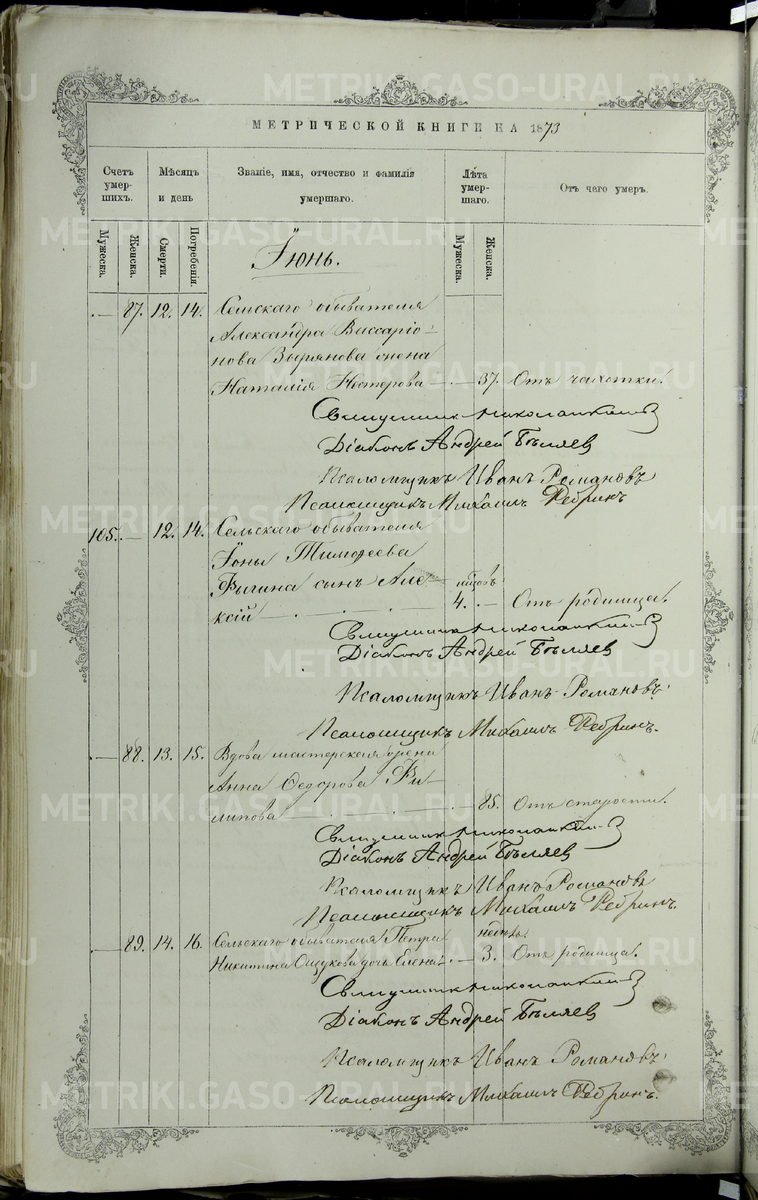 МЕТРИЧЕСКОЙ КНИГИ НА 1873
Счетъ умершихъ.
Мѣсяцъ и день
Званіе, имя, отчество и фамилія умершаго.
Лѣта умершаго.
Отъ чего умеръ.
Мужеска.
Женска.
Смерти.
Погребенія.
Мужеска.
Женска.
Іюнь.
87. 12. 14. Сельскаго обывателя
Александра Виссаріо-
нова Зырянова жена
Наталія Нестерова 37. Отъ чахотки.
Священникъ
Діаконъ Андрей Бѣляев
Псаломщикъ Иванъ Романовъ
Псаломщикъ Михаилъ Ребринъ
105. 12. 14. Сельскаго обывателя
Іоны Тимоѳеева
сынъ Але
ксій 4. Отъ родимца.
Священникъ
Діаконъ Андрей Бѣляев
Псаломщикъ Иванъ Романовъ.
Псаломщикъ Михаилъ Ребринъ.
88. 13. 15. Вдова мастерская
Анна Ѳедорова Фи-
липова 85. Отъ старости.
Священникъ
Діаконъ Андрей Бѣляев
Псаломщикъ Иванъ Романовъ
Псаломщикъ Михаилъ Ребринъ.
89. 14. 16. Сельскаго обывателя Петра недѣль
Никитина дочь Елена 3. Отъ родимца.
Священникъ
Діаконъ Андрей Бѣляев
Псаломщикъ Иванъ Романовъ
Псаломщикъ Михаилъ Ребринъ.
METRIKI.GASO-URAL.RU